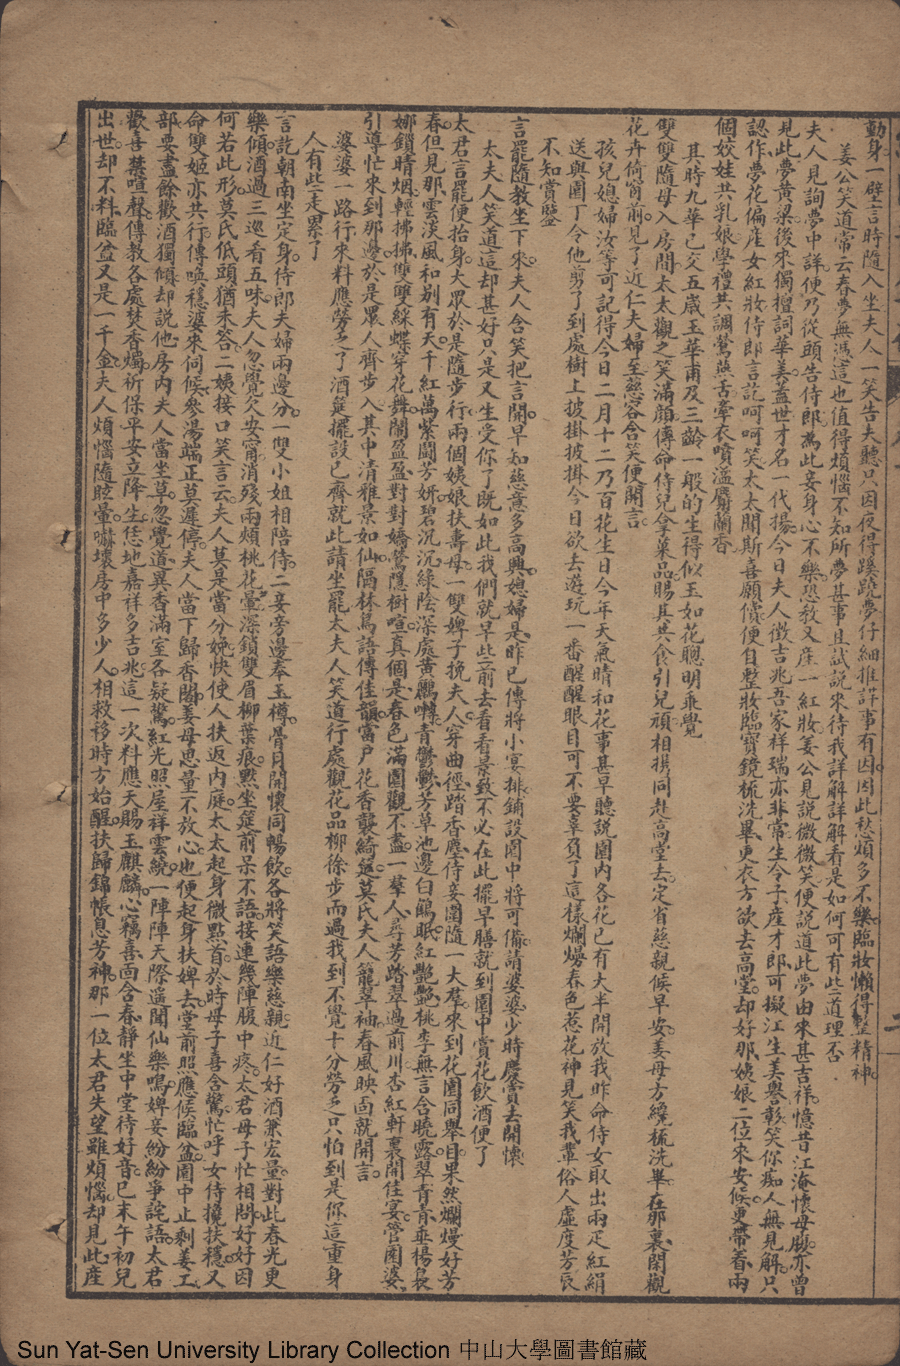 動身一壁言時隨入坐夫人一笑告夫聽只因夜得蹊蹺夢仔細推詳事有因因此愁煩多不樂臨妝懶得整精神
姜公笑道常云春夢無憑這也值得煩惱不知所夢甚事且試說來待我詳解詳解看是如何可有此道理否
夫人見詢夢中詳便乃從頭告侍郎為此妾身心不樂恐教又產一紅妝姜公見說微微笑便說道此夢由來甚吉祥憶昔江淹懷母腹亦曾
見此夢黃粱後來獨擅詞華美蓋世才名一代揚今日夫人徵吉兆吾家祥瑞亦非常生令子產才郎可擬江生美譽彰笑你痴人無見解只
認作夢花偏產女紅妝侍郎言訖呵呵笑太太聞斯喜願償便自整妝臨寶鏡梳洗畢更衣方欲去高堂却好那姨娘二位來安候更帶着兩
個姣娃共乳娘學禮共調鶯燕舌牽衣噴溫麝蘭香
其時九華已交五歲玉華甫及三齡一般的生得似玉如花聰明乖覺
雙雙隨母入房間太太觀之笑滿顏傳命侍兒拿菓品賜其共食引兒頑相携同赴高堂去定省慈親候早安姜母方纔梳洗畢在那裏閒觀
花卉倚窗前見了近仁夫婦至慈容含笑便開言
孩兒媳婦汝等可記得今日二月十二乃百花生日今年天氣晴和花事甚早聽說園內各花已有大半開放我昨命侍女取出兩疋紅絹
送與園丁令他剪了到處樹上披掛披掛今日欲去遊玩一番醒醒眼目可不要辜負了這樣爛熳春色惹花神見笑我輩俗人虛度芳辰
不知賞鑒
言罷隨教坐下來夫人含笑把言開早知慈意多高興媳婦是昨已傳將小宴排鋪設園中將可備請婆婆少時慶賞去開懷
太夫人笑道這却甚好只是又生受你了既如此我們就早些前去看看景致不必在此擺早膳就到園中賞花飲酒便了
太君言罷便抬身大眾於是隨步行兩個姨娘扶壽母一雙婢子挽夫人穿曲徑踏香塵侍妾圍隨一大羣來到花園同舉目果然爛熳好芳
春但見那雲淡風和別有天千紅萬紫鬪芳妍碧沉沉綠陰深處黃鸝囀青鬱鬱芳草池邊白鷗眠紅艷艷桃李無言含曉露翠青青垂楊裊
娜鎖晴烟輕拂拂雙雙綵蝶穿花舞鬧盈盈對對嬌鶯隱樹喧真個是春色滿園觀不盡一羣人尋芳踏翠過前川杏紅軒裏開佳宴管園婆
引導忙來到那邊於是眾人齊步入其中清雅景如仙隔林鳥語傳佳韻當戶花香襲綺筵莫氏夫人籠翠袖春風映面就開言
婆婆一路行來料應勞乏了酒筵擺設已齊就此請坐罷太夫人笑道行處觀花品柳徐步而過我到不覺十分勞乏只怕到是你這重身
人有些走累了
言訖朝南坐定身侍郎夫婦兩邊分一雙小姐相陪侍二妾旁邊奉玉樽骨月開懷同暢飲各將笑語樂慈親近仁好酒兼宏量對此春光更
樂傾酒過三巡看五味夫人忽覺欠安甯消殘兩頰桃花暈深鎖雙眉柳葉痕默坐筵前呆不語接連幾陣腹中疼太君母子忙相問好好因
何若此形莫氏低頭猶未答二姨接口笑言云夫人莫是當分娩快使人扶返內庭太太起身微點首於時母子喜含驚忙呼女侍攙扶穩又
命雙姬亦共行傳喚穩婆來伺候參湯端正莫遲停夫人當下歸香閣姜母思量不放心也便起身扶婢去堂前照應候臨盆園中止剩姜工
部要盡餘歡酒獨傾却說他房內夫人當坐草忽覺道異香滿室各疑驚紅光照屋祥雲繞一陣陣天際遙聞仙樂鳴婢妾紛紛爭詫語太君
歡喜禁喧聲傳教各處焚香燭祈保平安立降生恁地嘉祥多吉兆這一次料應天賜玉麒麟心竊喜面含春靜坐中堂待好音已末午初兒
出世却不料臨盆又是一千金夫人煩惱隨眩暈嚇壞房中多少人相救移時方始醒扶歸錦帳息芳神那一位太君失望雖煩惱却見此產
Sun Yat-Sen University Library Collection 中山大學圖書館藏